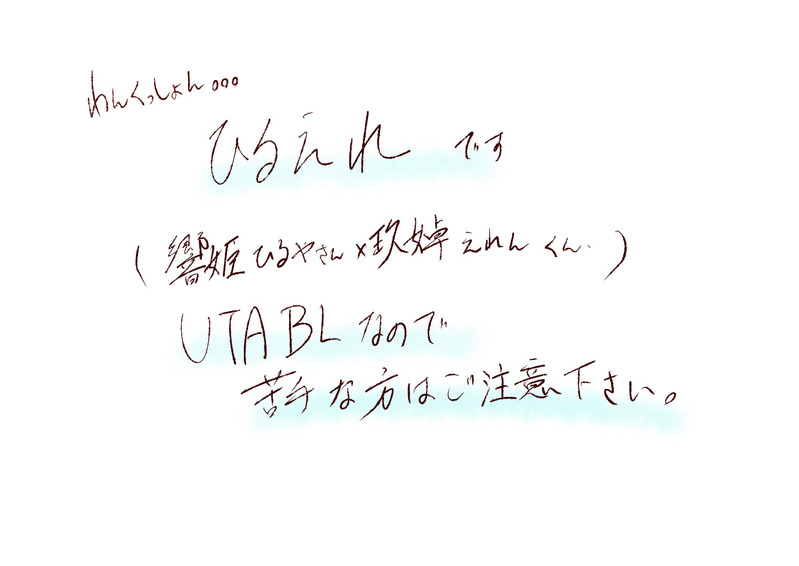 わんくっしょん。。。
ひるえれ です
(響姫ひるやさん×玖婥えれんくん.)
UTA BL なので
苦手な方はご注意下さい。